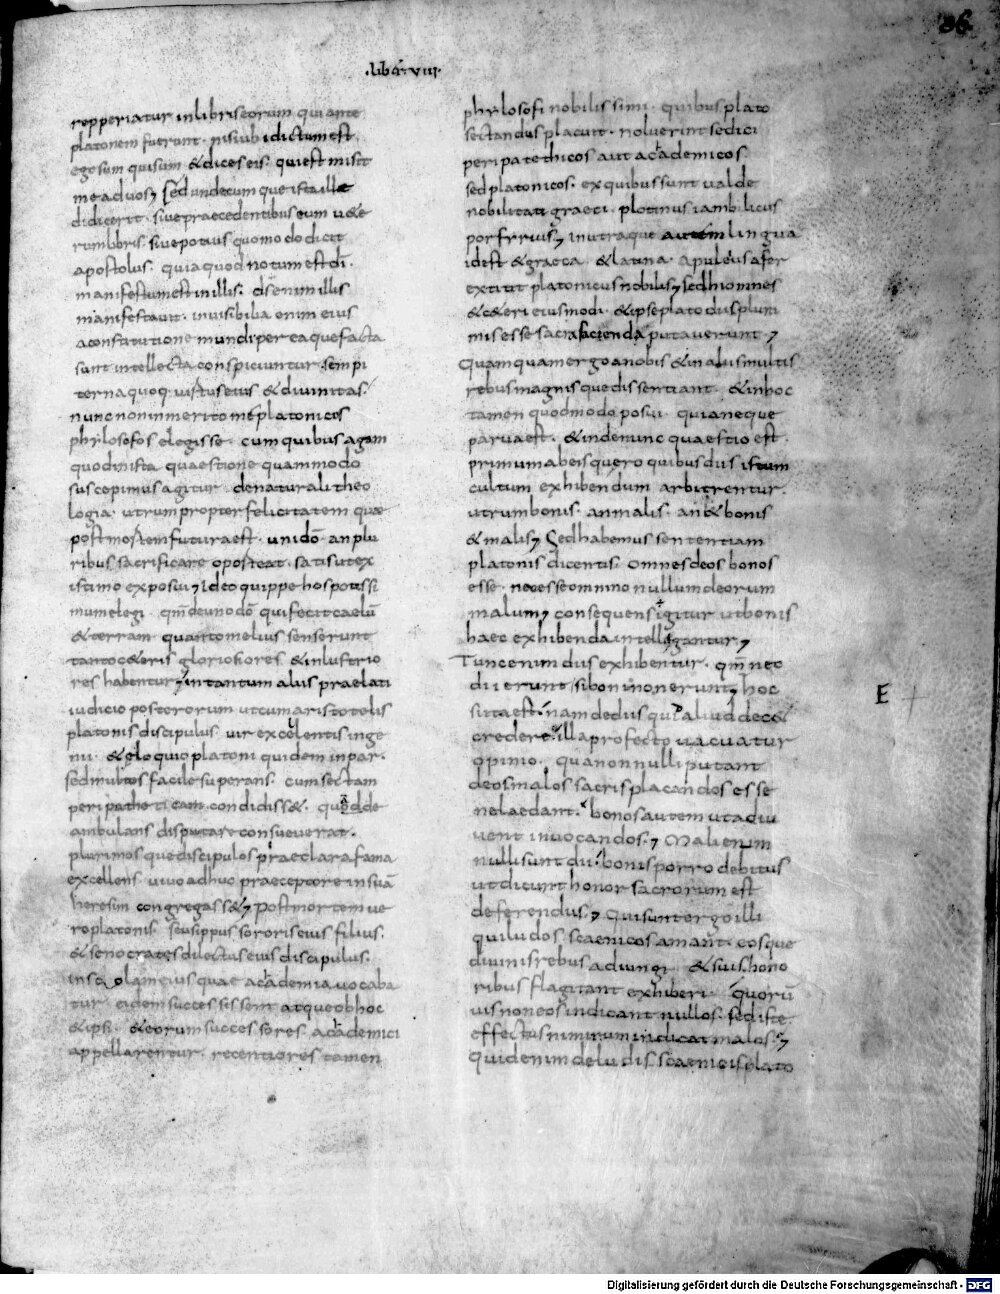 86
·lib̄er·viii·
repperiatur inlibriseorum quiante
platonem fuerunt· nisiubidictumest
egosum quisum &diceseis· quiest misit
meaduos; sed undecumque ista ille
didicerit· siuepraecedentibuseum u&e
rumlibris· siuepotius quomodo dicit
apostolus· quiaquod notumest dī·
manifestumest inillis· dsenimillis
manifestauit· inuisibilia enim eius
aconstitutione mundi per ea quefacta
sunt intellecta conspiciuntur sempi
ternaquoq· uirtuseius &diuinitas·
nunc noninmerito me platonicos
phylosofos elegisse· cum quibus agam
quodinista quaestione quammodo
suscepimus agitur denaturali theo
logia· utrum propter felicitatem quae
postmortem futuraest· unidō· anplu
ribus sacrificare oporteat· satis utex
istimo exposui; Ideo quippe hospotissi
mumelegi· qm̄deunodō· quifecit caelū
&terram quantomelius senserunt
tantoc&eris gloriosiores &inlustrio
res habentur; intantum aliis praelati
iudicio posterorum utcumaristotelis
platonis discipulus· uir excellentis inge
nii· &eloquio platoni quidem inpar·
sedmultos facile superans· cum sectam
peripatheticam condidiss&· quod de
ambulans disputare consueuerat·
plurimosque discipulos praeclara fama
excellens uiuo adhuc praeceptore insuā
heresim congregass&; Postmortem ue
roplatonis· seusippus sororis eius filius·
&senocrates dilectus eius discipulus·
inscolam eius quae academia uocaba
tur eidem successissent atqueobhoc
&ipsi· &eorum successores academici
appellarentur· recentiores tamen
phylosofi nobilissimi· quibus plato
sectandus placuit· noluerint sedici
peripatethicos aut academicos
sedplatonicos· ex quibus sunt ualde
nobilitati graeci· plotinus iambilicus
porfyrius; inutraque autem lingua
idest &graeca &latina· apuleius afer
extitit platonicus nobilis; sedhiomnes
&c&eri eiusmodi· &ipse plato dis pluri
mis esse sacra facienda putauerunt;
Quamquamergo anobis &inaliis multis
rebus magnisque dissentiant· &inhoc
tamen quodmodo posui· quianeque
paruaest· &indenunc quaestio est·
primumabeis quero quibus diis istum
cultum exhibendum arbitrentur·
utrumbonis· anmalis· an&bonis
&malis; Sedhabemus sententiam
platonis dicentis· omnesdeos bonos
esse· necesse omnino nullumdeorum
malum; consequens igitur utbonis
haec exhibenda intelligantur;
Tuncenim diis exhibentur· qm̄ nec
dii erunt sibon in onerunt; hoc
sitaest· nam dediis quid aliud dec&
credere· illa profecto uacuatur
opinio· qua nonnulli putant
deosmalos sacris placandos esse
nelaedant· bonos autem utadiu
uent inuocandos; Mali enim
nullisunt dii· bonis porro debitus
utdicunt honor sacrorum est
deferendus; Quisunt ergo illi
quiludos scaenicos amant eosque
diuinis rebus adiungi &suis hono
ribus flagitant exhiberi· quorū
uisnoneos indicant nullos· sediste
effectus nimirum indicat malos;
quidenim deludis scaenicis plato
E
Digitalisierung gefördert durch die Deutsche Forschungsgemeinschaft - DFG